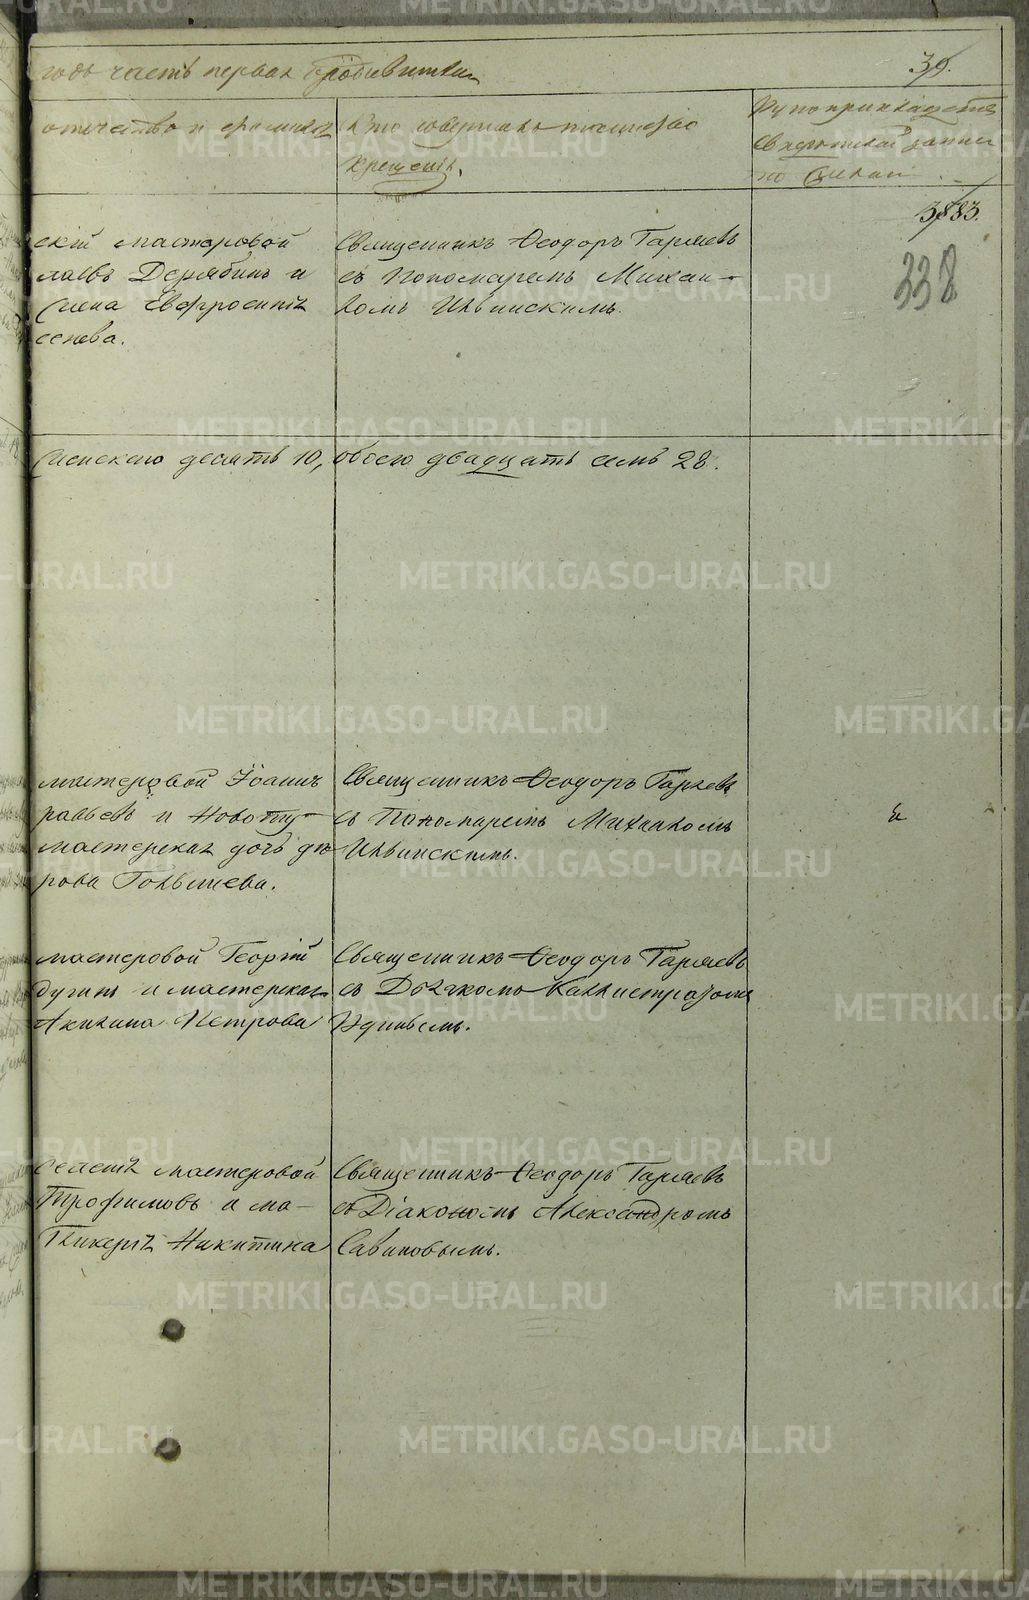 годъ часть первая о родившихся
39.
отчество и фамилія
Кто совершалъ таинство
крещенія.
Рукоприкладство
свидѣтелей записи
по желанію
3883.
338
скій мастеровой
Дерябинъ и
жена Евфросинія
сеиева.
Священникъ Ѳеодоръ Гаряевъ
съ Пономаремъ Михаи-
ломъ Ильинскимъ.
женскаго десять 10, обоего двадцать семь 28.
мастеровой Іоаннъ
и Новоту-
мастерская дочь дѣ-
рова Голышева.
Священникъ Ѳеодоръ Гаряевъ
съ Пономаремъ Михаиломъ
Ильинскимъ.
мастеровой Георгій
дугинъ и мастерская
Акилина Петрова
Священникъ Ѳеодоръ Гаряевъ
съ Дьячкомъ Каллистратомъ
Удинцемъ.
мастеровой
Трофимовъ и ма-
Гликерія Никитина
Священникъ Ѳеодоръ Гаряевъ
съ Діакономъ Александромъ
Савиновымъ.
METRIKI.GASO-URAL.RU